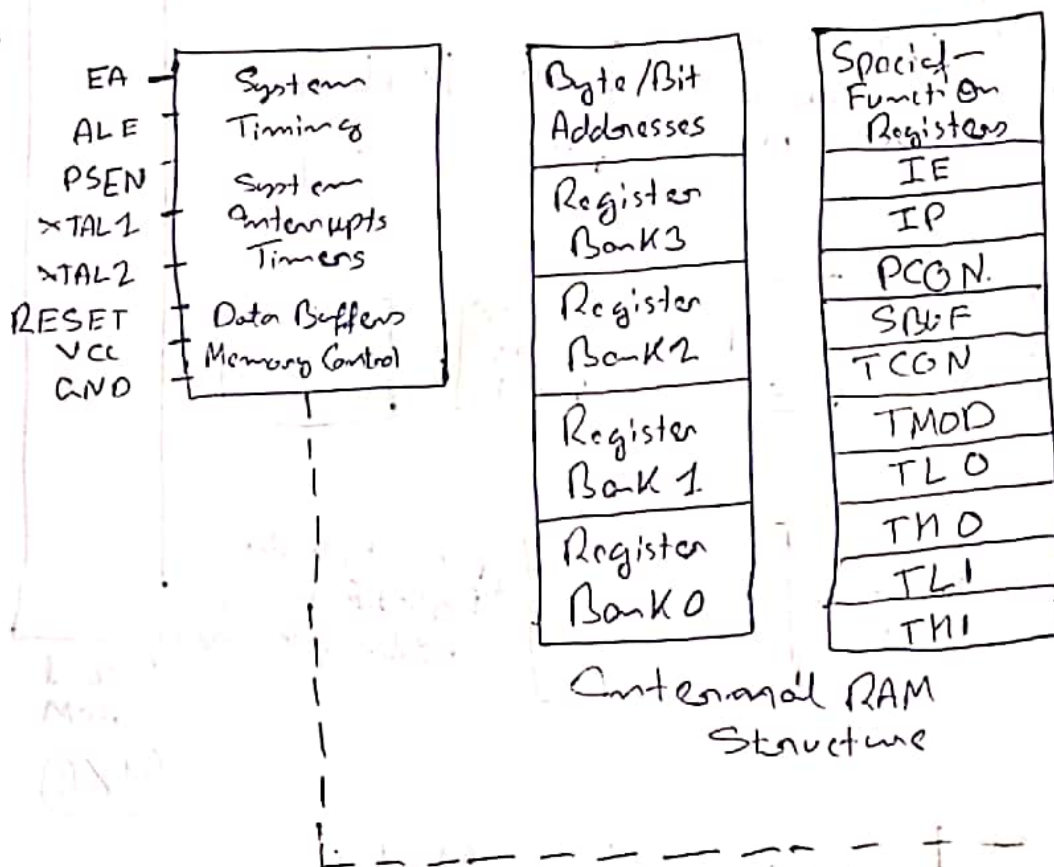 EA
ALE
PSEN
XTAL1
XTAL2
RESET
VCC
GND
System
Timing
System
Interrupts
Timers
Data Buffers
Memory Control
Byte/Bit
Addresses
Register
Bank3
Register
Bank2
Register
Bank 1
Register
Bank 0
Special-
Function
Registers
IE
IP
PCON.
SBUF
TCON
TMOD
TL0
TH0
TL1
TH1
Internal RAM
Structure